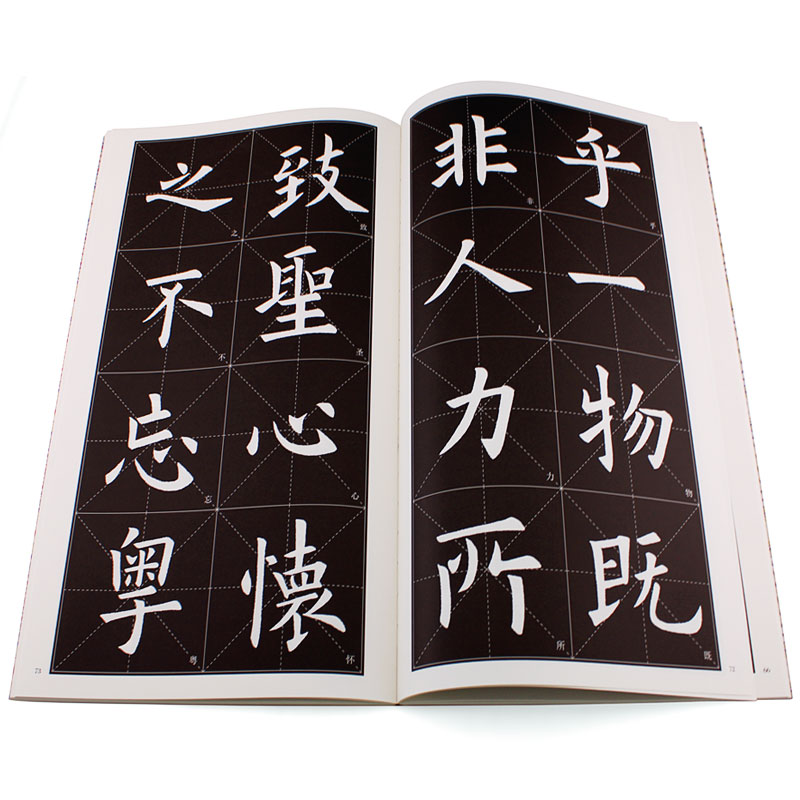 乎一物既
非人力所
致聖心懷
之不忘粤
乎
物
既
非
人
力
所
致
圣
心
怀
之
不
忘
粤
73